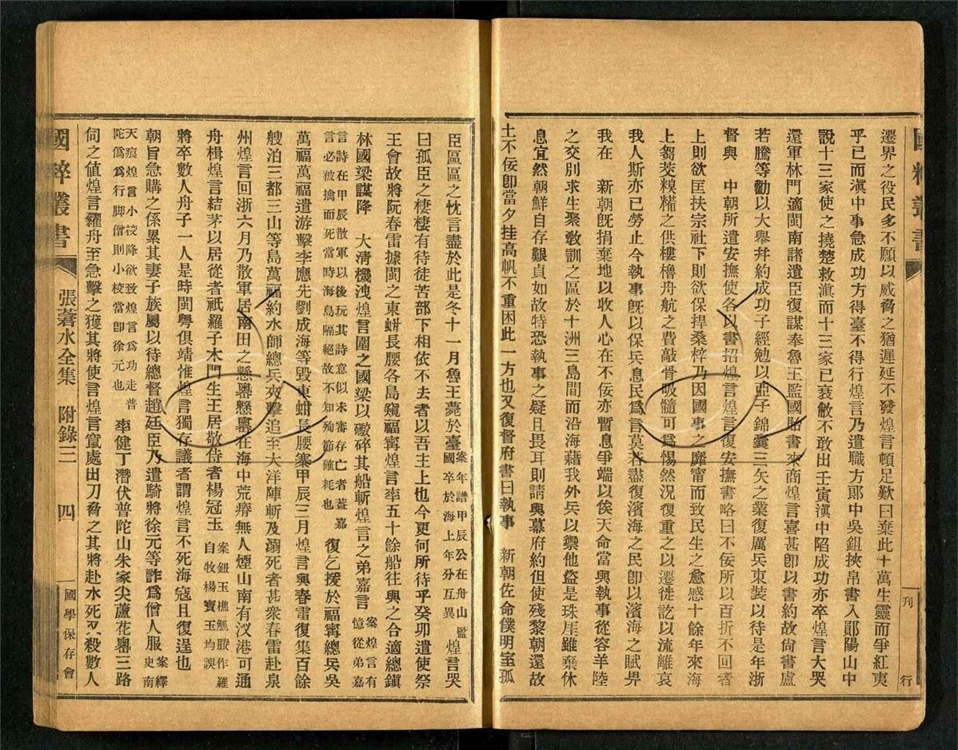 國粹叢書
刊行
遷界之役民多不願以威脅之猶遲延不發煌言頓足歎曰棄此十萬生靈而爭紅夷
乎已而滇中事急成功方得臺不得行煌言乃遣職方郞中吳鉏挾帛書入鄖陽山中
說十三家使之撓楚救滇而十三家已衰敝不敢出壬寅滇中陷成功亦卒煌言大哭
還軍林門適閩南諸遺臣復謀奉魯王監國貽書來商煌言喜甚卽以書約故尙書盧
若騰等勸以大舉幷約成功子經勉以亞子錦囊三矢之業復厲兵束裝以待是年浙
督與　中朝所遣安撫使各以書招煌言煌言復安撫書略曰不佞所以百折不回者
上則欲匡扶宗社下則欲保捍桑梓乃因國事之靡甯而致民生之愈感十餘年來海
上芻茭糗糒之供樓櫓舟航之費敲骨吸髓可爲惕然況復重之以遷徙訖以流離哀
我人斯亦已勞止今執事旣以保兵息民爲言莫若盡復濱海之民卽以濱海之賦畀
我在　新朝旣捐棄地以收人心在不佞亦暫息爭端以俟天命當與執事從容羊陸
之交別求生聚敎訓之區於十洲三島間而沿海藉我外兵以禦他盜是珠崖雖棄休
息宜然朝鮮自存艱貞如故特恐執事之疑且畏耳則請與幕府約但使殘黎朝還故
土不佞卽當夕挂高帆不重困此一方也又復督府書曰執事　新朝佐命僕明室孤
臣區區之忱言盡於此是冬十一月魯王薨於臺案年譜甲辰公在舟山監國卒於海上年分互異煌言哭
曰孤臣之棲棲有待徒苦部下相依不去者以吾主上也今更何所待乎癸卯遣使祭
王會故將阮春雷據閩之東蚶長腰各島窺福甯煌言率五十餘船往與之合適總鎭
林國梁謀降　大淸機洩煌言圍之國梁以礮碎其船斬煌言之弟嘉言案煌言有從弟嘉言詩在甲辰散軍以後玩其詩意似未審存亡者蓋嘉言必被擒而死當時海島隔絕故不知殉節確耗也復乞援於福甯總兵吳
萬福萬福遣游擊李應先劉成海等毀東蚶長腰寨甲辰三月煌言與春雷復集百餘
艘泊三都三山等島萬福約水師總兵夾擊追至大洋陣斬及溺死者甚衆春雷赴泉
州煌言回浙六月乃散軍居南田之懸嶴懸嶴在海中荒瘠無人煙山南有汊港可通
舟楫煌言結茅以居從者祇羅子木門生王居敬侍者楊冠玉案鈕玉樵觚賸作羅自牧楊寶玉均誤
將卒數人舟子一人是時閩粤俱靖惟煌言獨存議者謂煌言不死海寇且復逞也
朝旨急購之係累其妻子族屬以待總督趙廷臣乃遣騎將徐元等詐爲僧人服案繹史南天痕煌言小校降欲致煌言爲功走普陀僞爲行脚僧則小校當卽徐元也率健丁潛伏普陀山朱家尖蘆花嶴三路
伺之値煌言糴舟至急擊之獲其將使言煌言竄處出刀脅之其將赴水死又殺數人
國粹叢書
張蒼水全集
附錄三
四
國學保存會